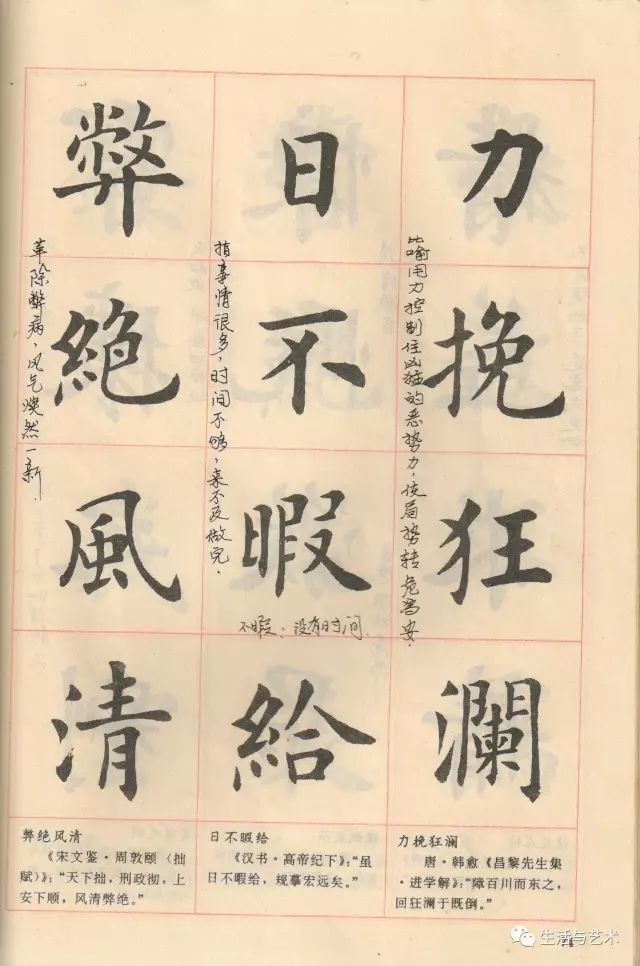 力挽狂瀾
比喻用力控制住凶猛的恶势力，使局势转危為安.
日不暇給
指事情很多，时间不够，来不及做完.
不暇：没有时间.
弊絶風清
革除弊病，风气焕然一新.
力挽狂澜
唐·韩愈《昌黎先生集
·进学解》：“障百川而东之，
回狂澜于既倒。”
日不暇给
《汉书·高帝纪下》：“虽
日不暇给，规摹宏远矣。”
弊绝风清
《宋文鉴·周敦颐〈拙
赋〉》：“天下拙，刑政彻，上
安下顺，风清弊绝。”
生活与艺术